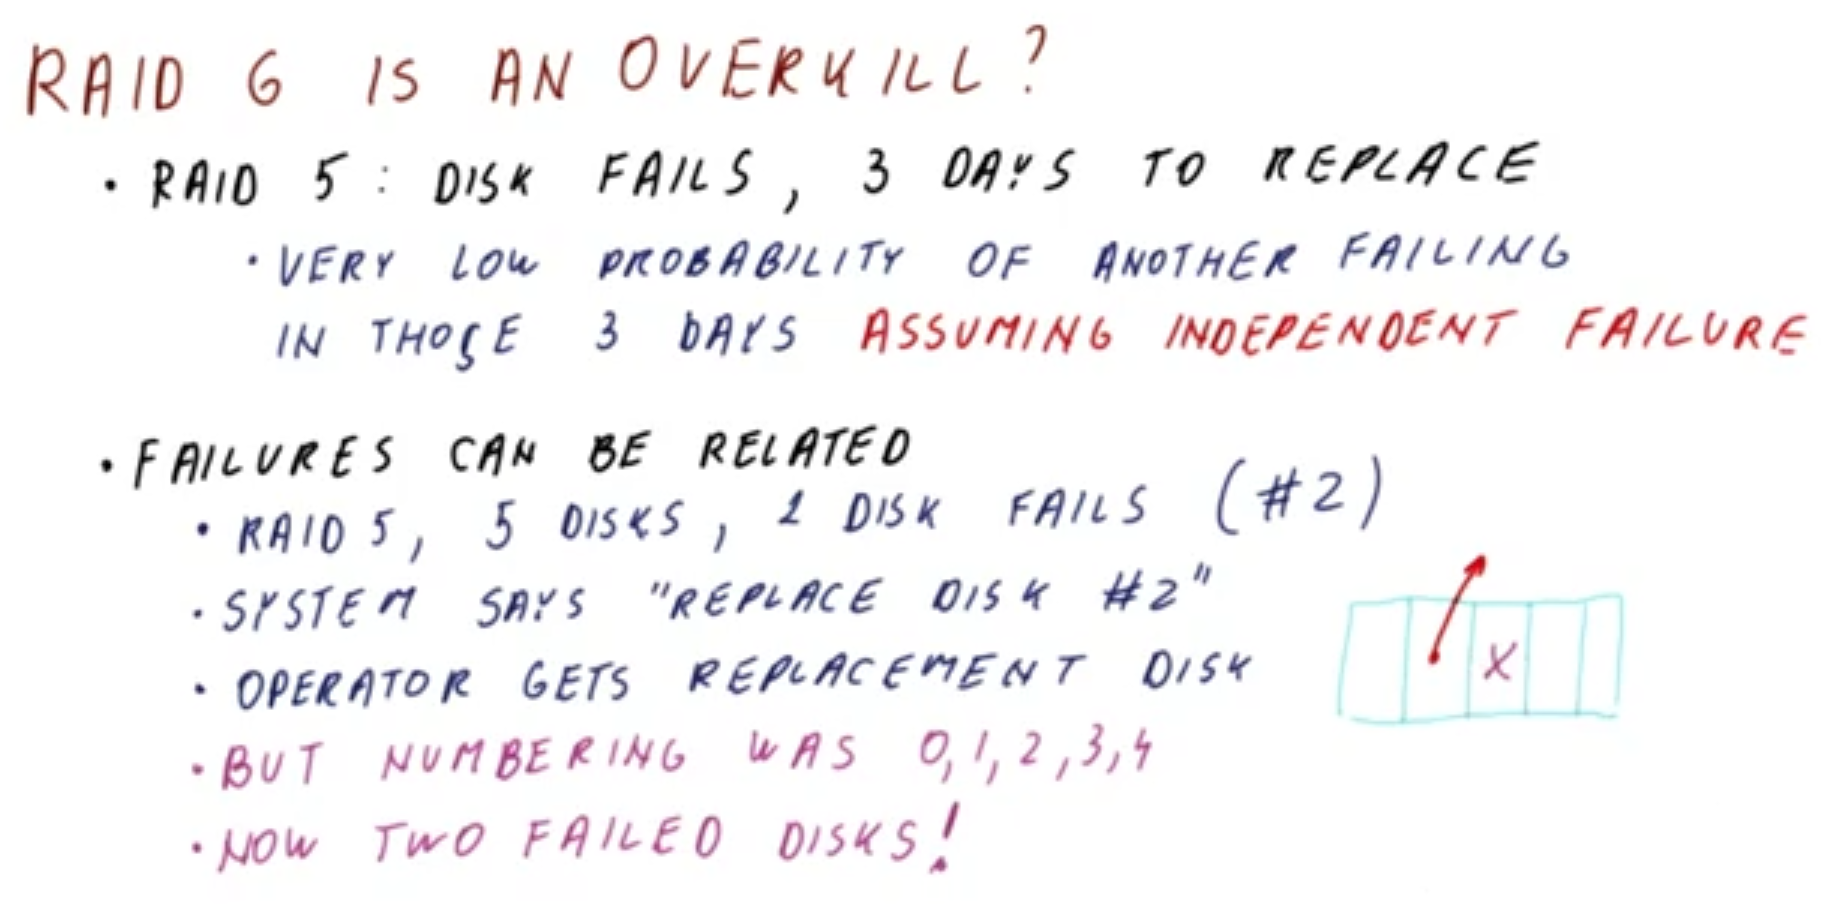 RAID 6 IS AN OVERKILL?
• RAID 5: DISK FAILS, 3 DAYS TO REPLACE
• VERY LOW PROBABILITY OF ANOTHER FAILING
IN THOSE 3 DAYS ASSUMING INDEPENDENT FAILURE
• FAILURES CAN BE RELATED
• RAID 5, 5 DISKS, 1 DISK FAILS (#2)
• SYSTEM SAYS "REPLACE DISK #2"
• OPERATOR GETS REPLACEMENT DISK
X
• BUT NUMBERING WAS 0,1,2,3,4
• NOW TWO FAILED DISKS!